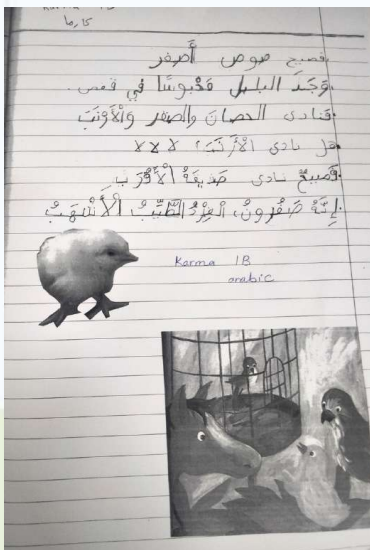 كارما
فصيح صوص أصفر
وَجَدَ البلبل مَحْبوسًا في قفص.
فنادى الحصانَ والصقر وَالْأَرْنَبَ
هل نادى الْأَرْنَبَ؟ لا لا لا
فَصيحٌ نادى صَديقَهُ الْأَقْرَبَ
إِنَّهُ صَفْرونُ، الْقِرْدُ الطَّيِّبُ الْأَشْهَبُ
Karma 1B
arabic